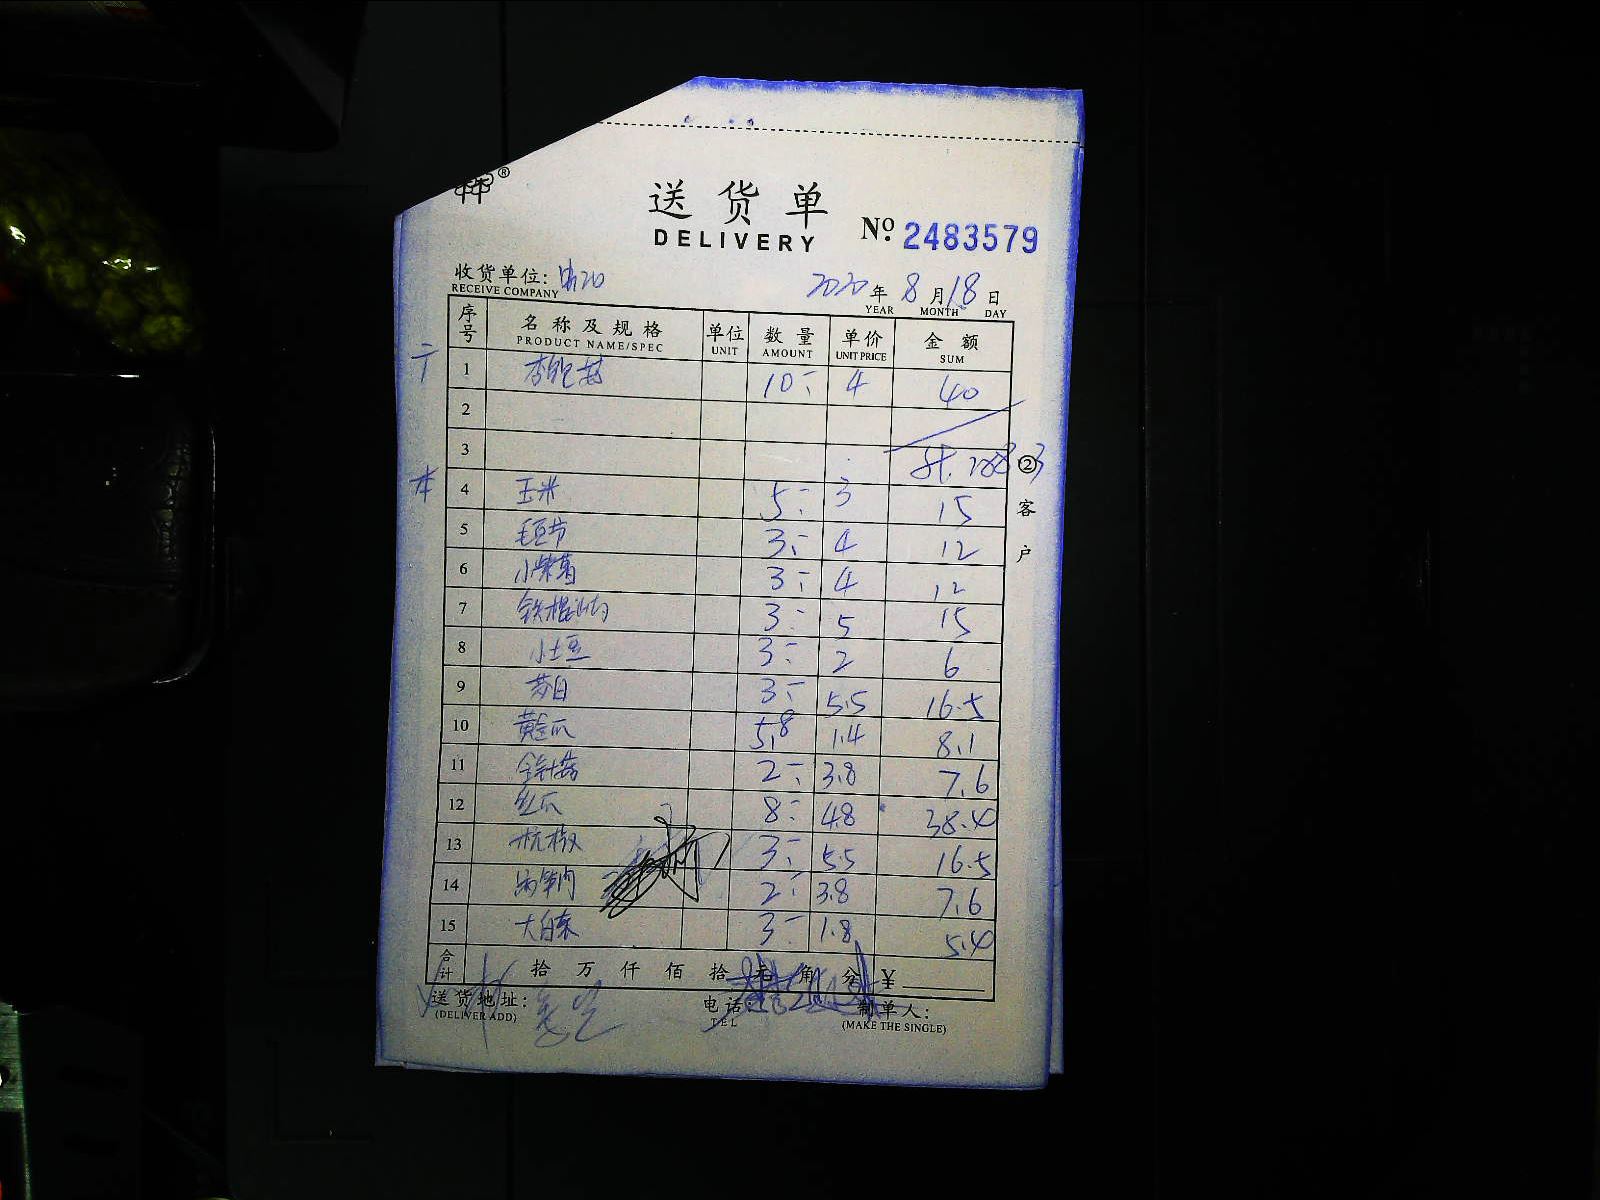 ®
送货单
DELIVERY No. 2483579
收货单位: 2020年8月18日
RECEIVE COMPANY YEAR MONTH DAY
序号 名称及规格 单位 数量 单价 金额
PRODUCT NAME/SPEC UNIT AMOUNT UNIT PRICE SUM
1 10 4 40
2
3
② 客户
4 玉米 5 3 15
5 毛豆节 3 4 12
6 3 4 12
7 3 5 15
8 小土豆 3 2 6
9 茭白 3 5.5 16.5
10 黄瓜 5.8 1.4 8.1
11 金针菇 2 3.8 7.6
12 丝瓜 8 4.8 38.4
13 杭椒 3 5.5 16.5
14 2 3.8 7.6
15 大白菜 3 1.8 5.4
合计 拾万仟佰拾元角分 ¥
送货地址: 电话: 制单人:
(DELIVER ADD) TEL (MAKE THE SINGLE)